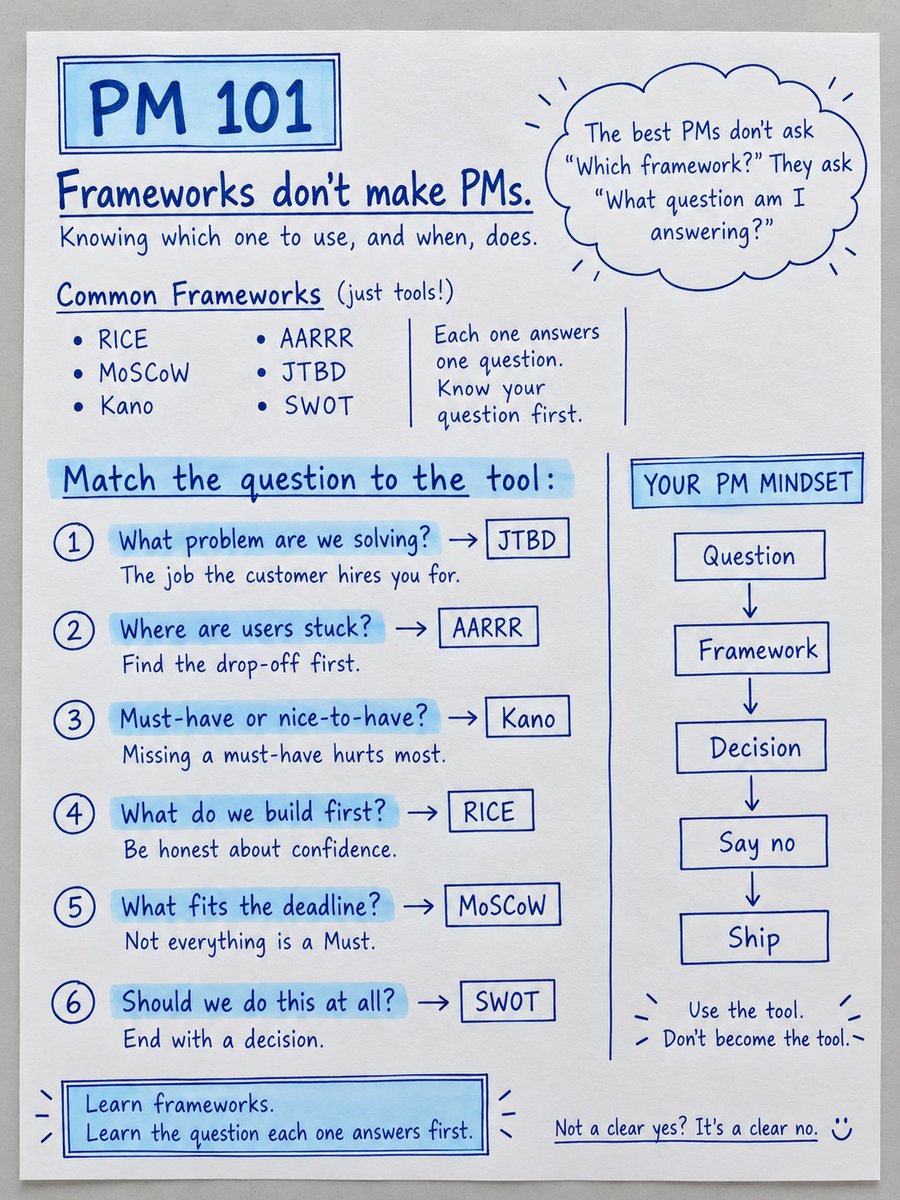 PM 101
Frameworks don't make PMs.
Knowing which one to use, and when, does.
The best PMs don't ask
“Which framework?” They ask
“What question am I
answering?”
Common Frameworks (just tools!)
• RICE
• MoSCoW
• Kano
• AARRR
• JTBD
• SWOT
Each one answers
one question.
Know your
question first.
Match the question to the tool:
1 What problem are we solving? → JTBD
The job the customer hires you for.
2 Where are users stuck? → AARRR
Find the drop-off first.
3 Must-have or nice-to-have? → Kano
Missing a must-have hurts most.
4 What do we build first? → RICE
Be honest about confidence.
5 What fits the deadline? → MoSCoW
Not everything is a Must.
6 Should we do this at all? → SWOT
End with a decision.
YOUR PM MINDSET
Question
Framework
Decision
Say no
Ship
Use the tool.
Don't become the tool.
Learn frameworks.
Learn the question each one answers first.
Not a clear yes? It's a clear no.